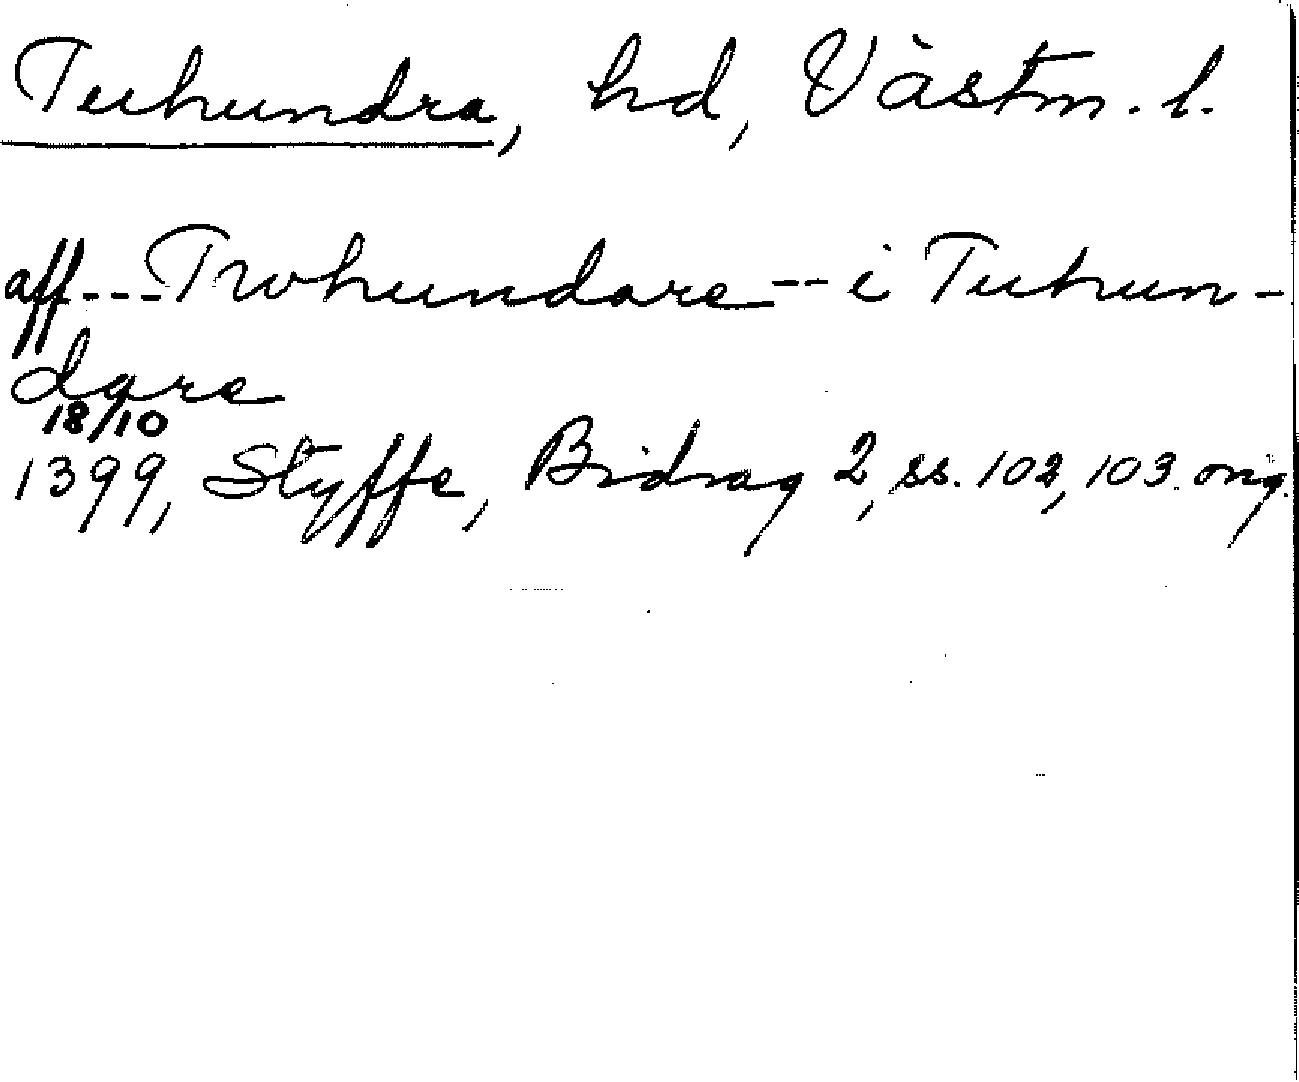 Tuhundra, hd, Västm. l.
aff --- Twhundare -- i Tuhun-
dare
18/10
1399, Styffe, Bidrag 2, ss. 102, 103. orig.